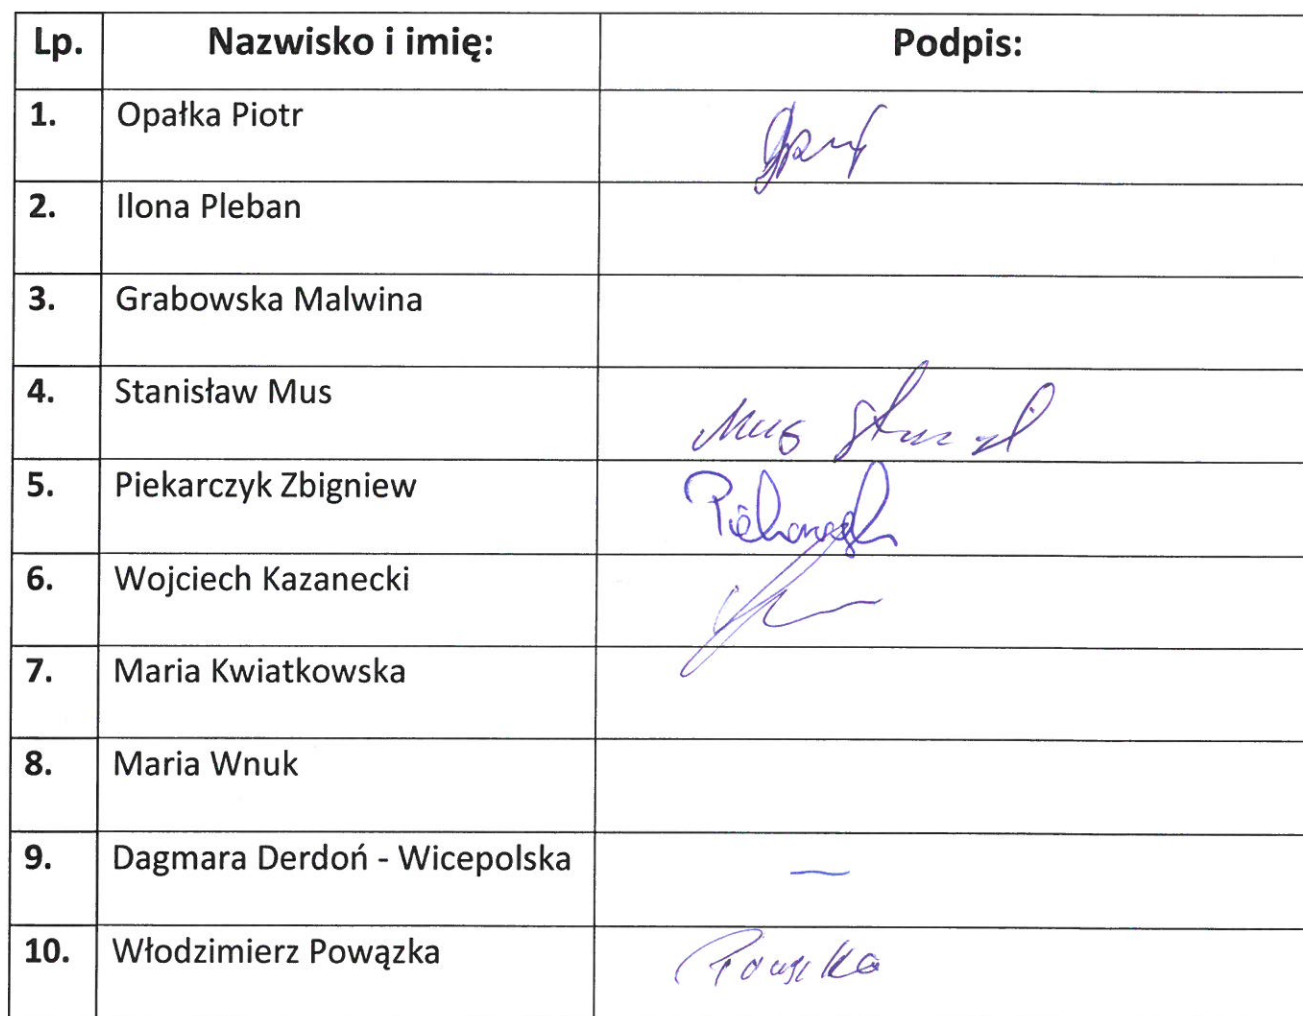 Lp. Nazwisko i imię: Podpis:
1. Opałka Piotr
2. Ilona Pleban
3. Grabowska Malwina
4. Stanisław Mus Mus
5. Piekarczyk Zbigniew
6. Wojciech Kazanecki
7. Maria Kwiatkowska
8. Maria Wnuk
9. Dagmara Derdoń - Wicepolska —
10. Włodzimierz Powązka